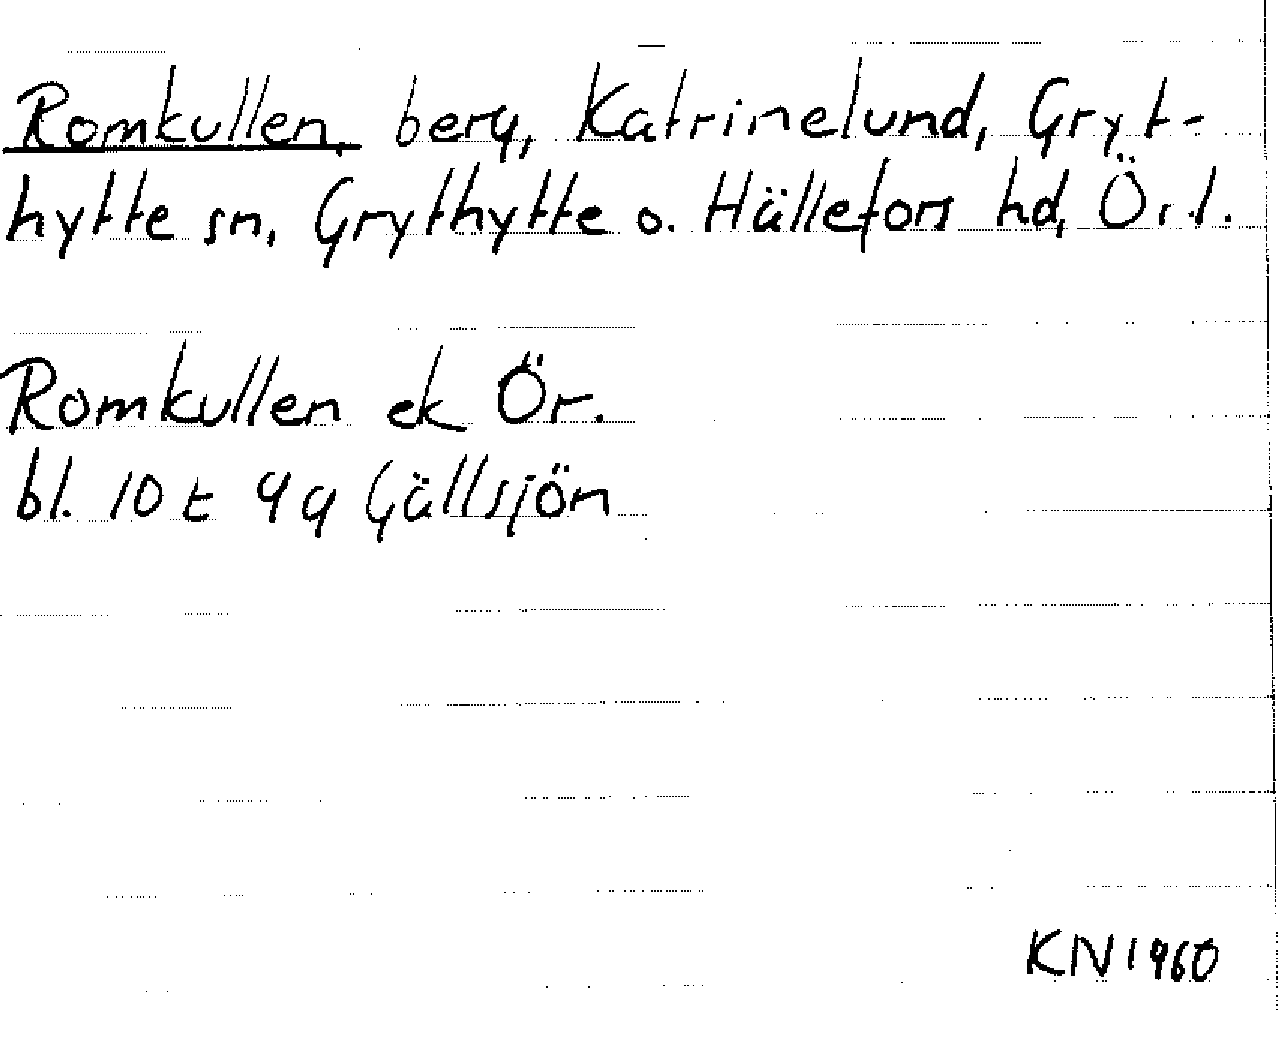 Romkullen, berg, Katrinelund, Gryt-
hytte sn, Grythytte o. Hällefors hd, Ör. l.
Romkullen ek Ör.
bl. 10 E 9 g Gällsjön
KN 1960